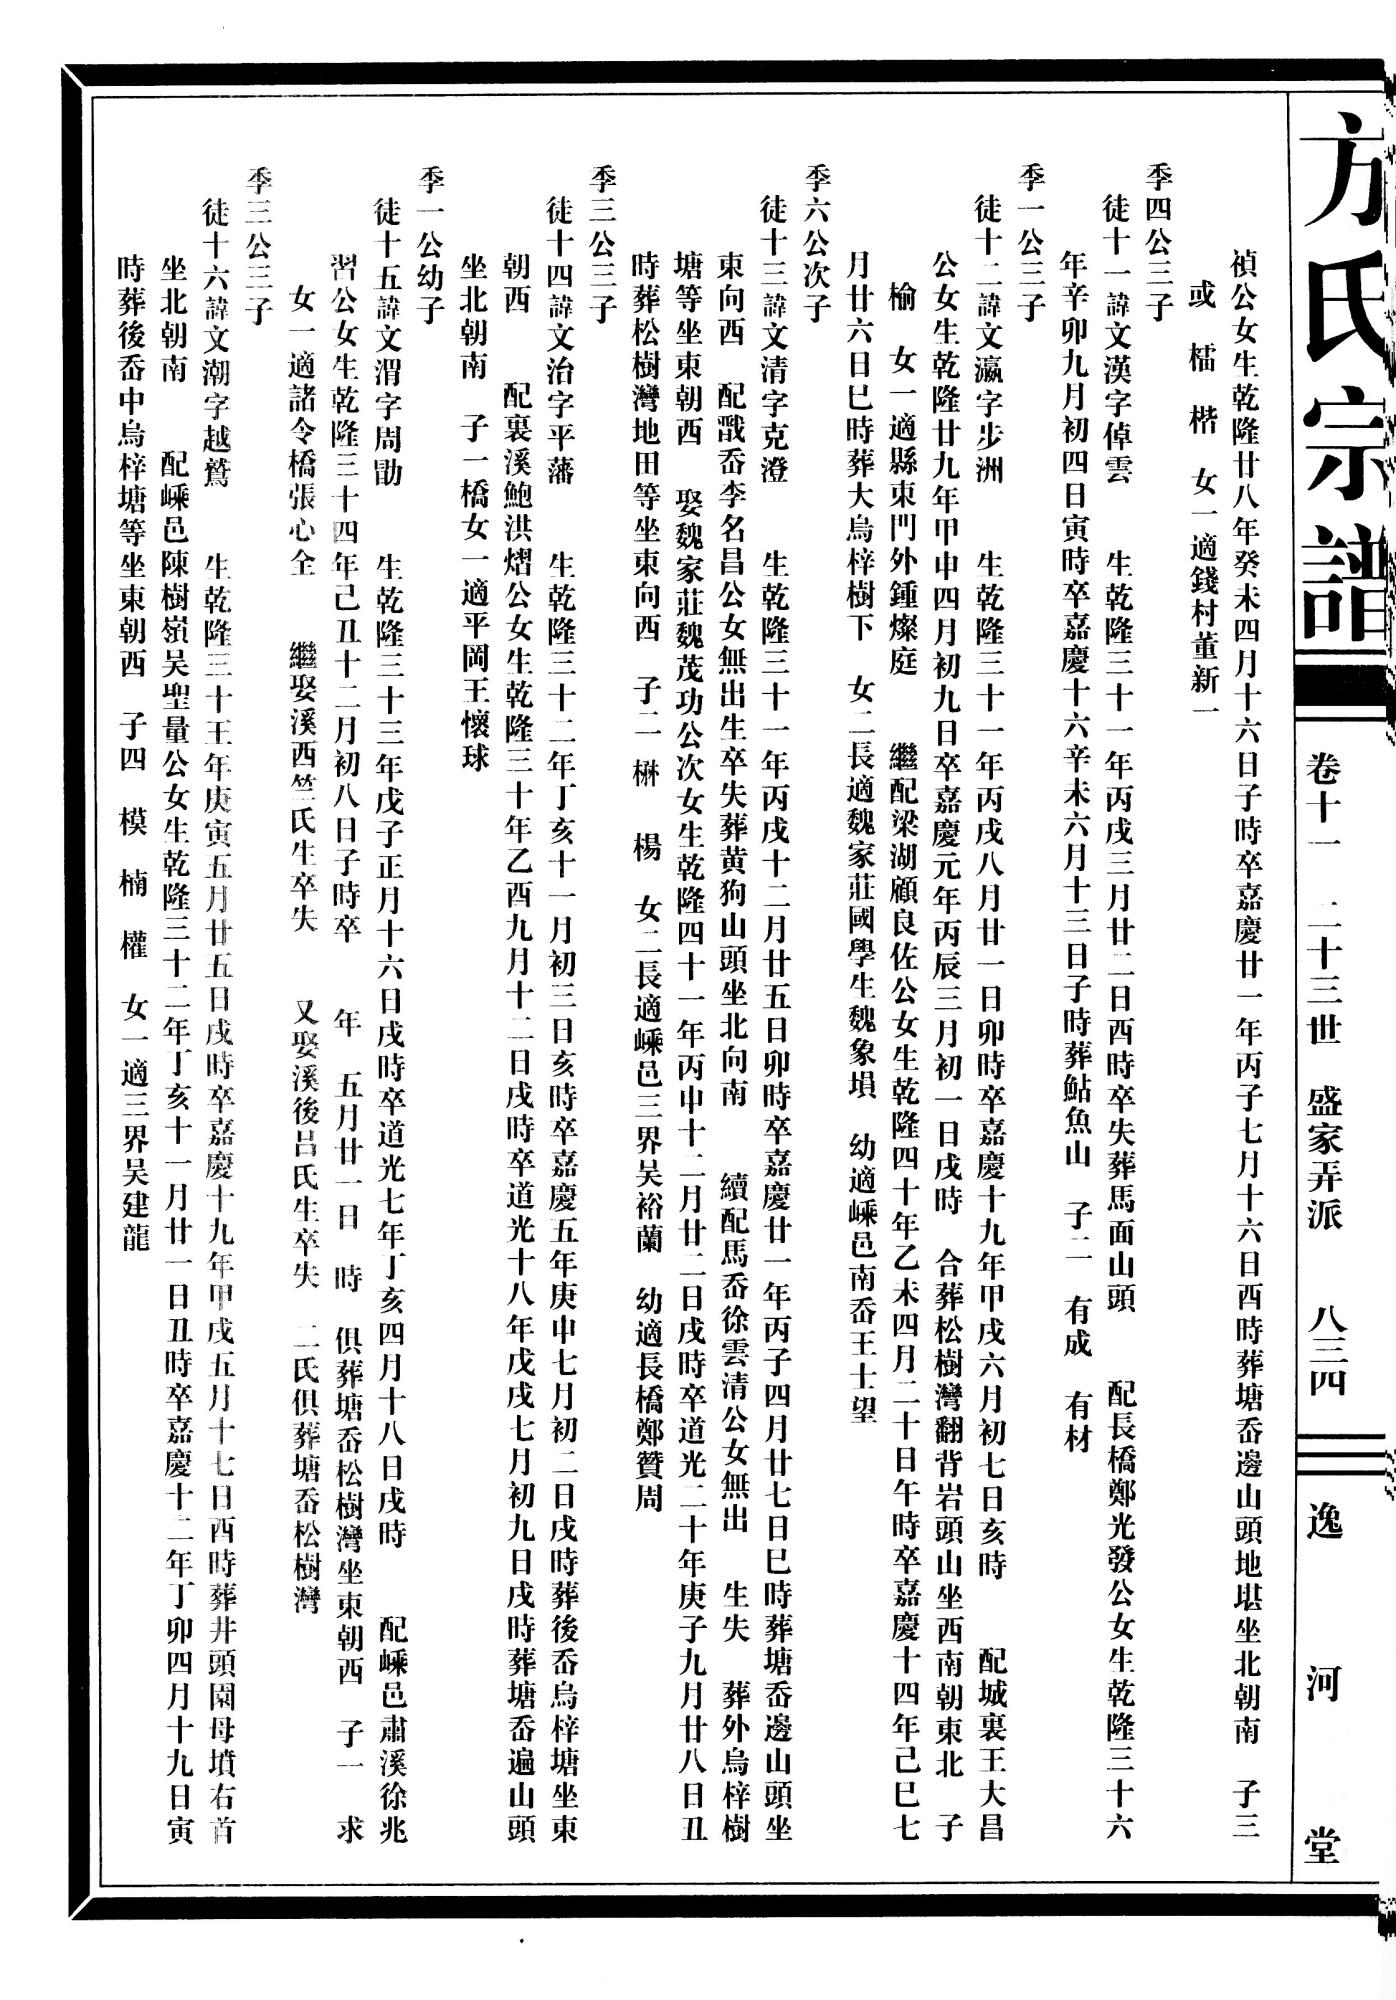 方氏宗譜 卷十一 二十三世 盛家弄派 八三四 逸河堂
禎公女生乾隆廿八年癸未四月十六日子時卒嘉慶廿一年丙子七月十六日酉時葬塘岙邊山頭地堪坐北朝南 子三
或 檽 楷 女一適錢村董新一
季四公三子
徒十一諱文漢字倬雲 生乾隆三十一年丙戌三月廿二日酉時卒失葬馬面山頭 配長橋鄭光發公女生乾隆三十六
年辛卯九月初四日寅時卒嘉慶十六辛未六月十三日子時葬鮎魚山 子二 有成 有材
季一公三子
徒十二諱文瀛字步洲 生乾隆三十一年丙戌八月廿一日卯時卒嘉慶十九年甲戌六月初七日亥時 配城裏王大昌
公女生乾隆廿九年甲申四月初九日卒嘉慶元年丙辰三月初一日戌時 合葬松樹灣翻背岩頭山坐西南朝東北 子
榆 女一適縣東門外鍾燦庭 繼配梁湖顧良佐公女生乾隆四十年乙未四月二十日午時卒嘉慶十四年己巳七
月廿六日巳時葬大烏梓樹下 女二長適魏家莊國學生魏象塤 幼適嵊邑南岙王士望
季六公次子
徒十三諱文清字克澄 生乾隆三十一年丙戌十二月廿五日卯時卒嘉慶廿一年丙子四月廿七日巳時葬塘岙邊山頭坐
東向西 配戩岙李名昌公女無出生卒失葬黄狗山頭坐北向南 續配馬岙徐雲清公女無出 生失 葬外烏梓樹
塘等坐東朝西 娶魏家莊魏茂功公次女生乾隆四十一年丙申十二月廿二日戌時卒道光二十年庚子九月廿八日丑
時葬松樹灣地田等坐東向西 子二 楙 楊 女二長適嵊邑三界吴裕蘭 幼適長橋鄭贊周
季三公三子
徒十四諱文治字平藩 生乾隆三十二年丁亥十一月初三日亥時卒嘉慶五年庚申七月初二日戌時葬後岙烏梓塘坐東
朝西 配裏溪鮑洪熠公女生乾隆三十年乙酉九月十二日戌時卒道光十八年戊戌七月初九日戌時葬塘岙遍山頭
坐北朝南 子一橋女一適平岡王懷球
季一公幼子
徒十五諱文渭字周勖 生乾隆三十三年戊子正月十六日戌時卒道光七年丁亥四月十八日戌時 配嵊邑肅溪徐兆
習公女生乾隆三十四年己丑十二月初八日子時卒 年 五月廿一日 時 俱葬塘岙松樹灣坐東朝西 子一 求
女一適諸令橋張心全 繼娶溪西竺氏生卒失 又娶溪後吕氏生卒失 二氏俱葬塘岙松樹灣
季三公三子
徒十六諱文潮字越鷟 生乾隆三十王年庚寅五月廿五日戌時卒嘉慶十九年甲戌五月十七日酉時葬井頭園母墳右首
坐北朝南 配嵊邑陳樹嶺吴聖量公女生乾隆三十二年丁亥十一月廿一日丑時卒嘉慶十二年丁卯四月十九日寅
時葬後岙中烏梓塘等坐東朝西 子四 模 楠 權 女一適三界吴建龍